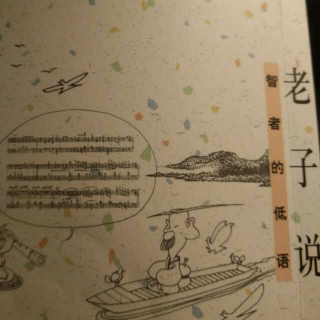 老子说
智者的低语